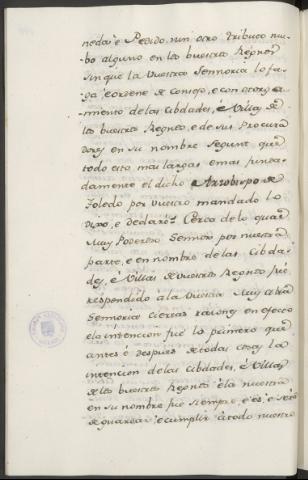 neda é Pedido, nin otro Tributo nue-
bo alguno en los vuestros Regnos
sin que la Vuestra Sennoria lo fa-
ga é ordene de Consejo, é con otorga-
miento de las Cibdades, é Villas de
los vuestros Regnos, é de sus Procura
dores en su nombre segunt que
todo esto mas largas e mas funda-
damente el dicho Arzobispo de
Toledo por vuestro mandado lo
dixo, e declaró. Cerca de lo qual
Muy Poderoso Sennor por nuestra
parte, e en nombre de las Cibda-
des, é Villas de vuestros Regnos fue
respondido a la Vuestra Muy alta
Sennoria Ciertas razones en efecto
e la intencion fue lo primero que
antes é despues de todas cosas la
intencion de las Cibdades, é Villas
de los vuestros Regnos é la nuestra
en su nombre fue siempre, é es, é será
de guardar é cumplir á todo nuestro